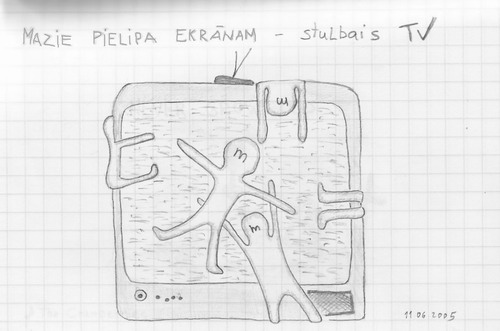 MAZIE PIELIPA EKRĀNAM – stulbais TV
m
m
m
11.06.2005